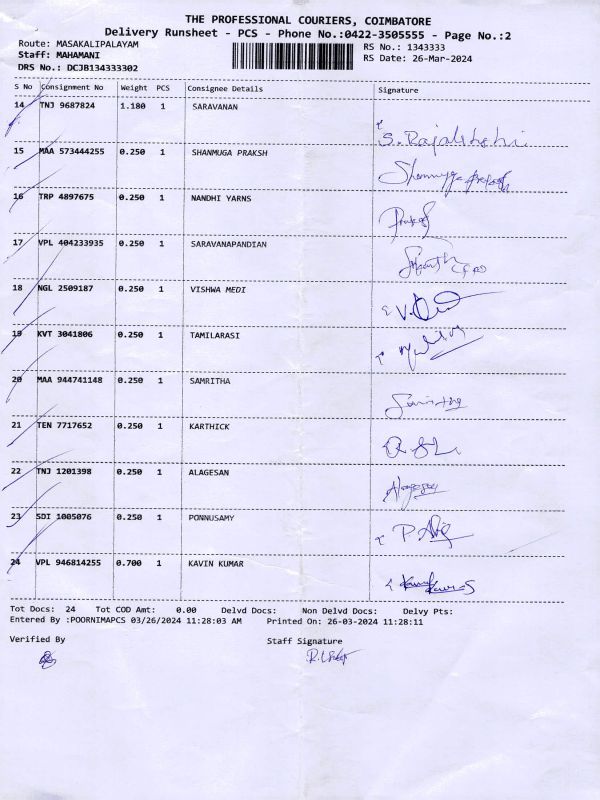 THE PROFESSIONAL COURIERS, COIMBATORE
Delivery Runsheet - PCS - Phone No.:0422-3505555 - Page No.:2
Route: MASAKALIPALAYAM RS No.: 1343333
Staff: MAHAMANI RS Date: 26-Mar-2024
DRS No.: DCJB134333302
S No Consignment No Weight PCS Consignee Details Signature
14 TNJ 9687824 1.180 1 SARAVANAN
S. Rajalakshmi
15 MAA 573444255 0.250 1 SHANMUGA PRAKSH
16 TRP 4897675 0.250 1 NANDHI YARNS
17 VPL 404233935 0.250 1 SARAVANAPANDIAN
18 NGL 2509187 0.250 1 VISHWA MEDI
19 KVT 3041806 0.250 1 TAMILARASI
20 MAA 944741148 0.250 1 SAMRITHA
21 TEN 7717652 0.250 1 KARTHICK
22 TNJ 1201398 0.250 1 ALAGESAN
23 SDI 1005076 0.250 1 PONNUSAMY
24 VPL 946814255 0.700 1 KAVIN KUMAR
Tot Docs: 24 Tot COD Amt: 0.00 Delvd Docs: Non Delvd Docs: Delvy Pts:
Entered By :POORNIMAPCS 03/26/2024 11:28:03 AM Printed On: 26-03-2024 11:28:11
Verified By Staff Signature